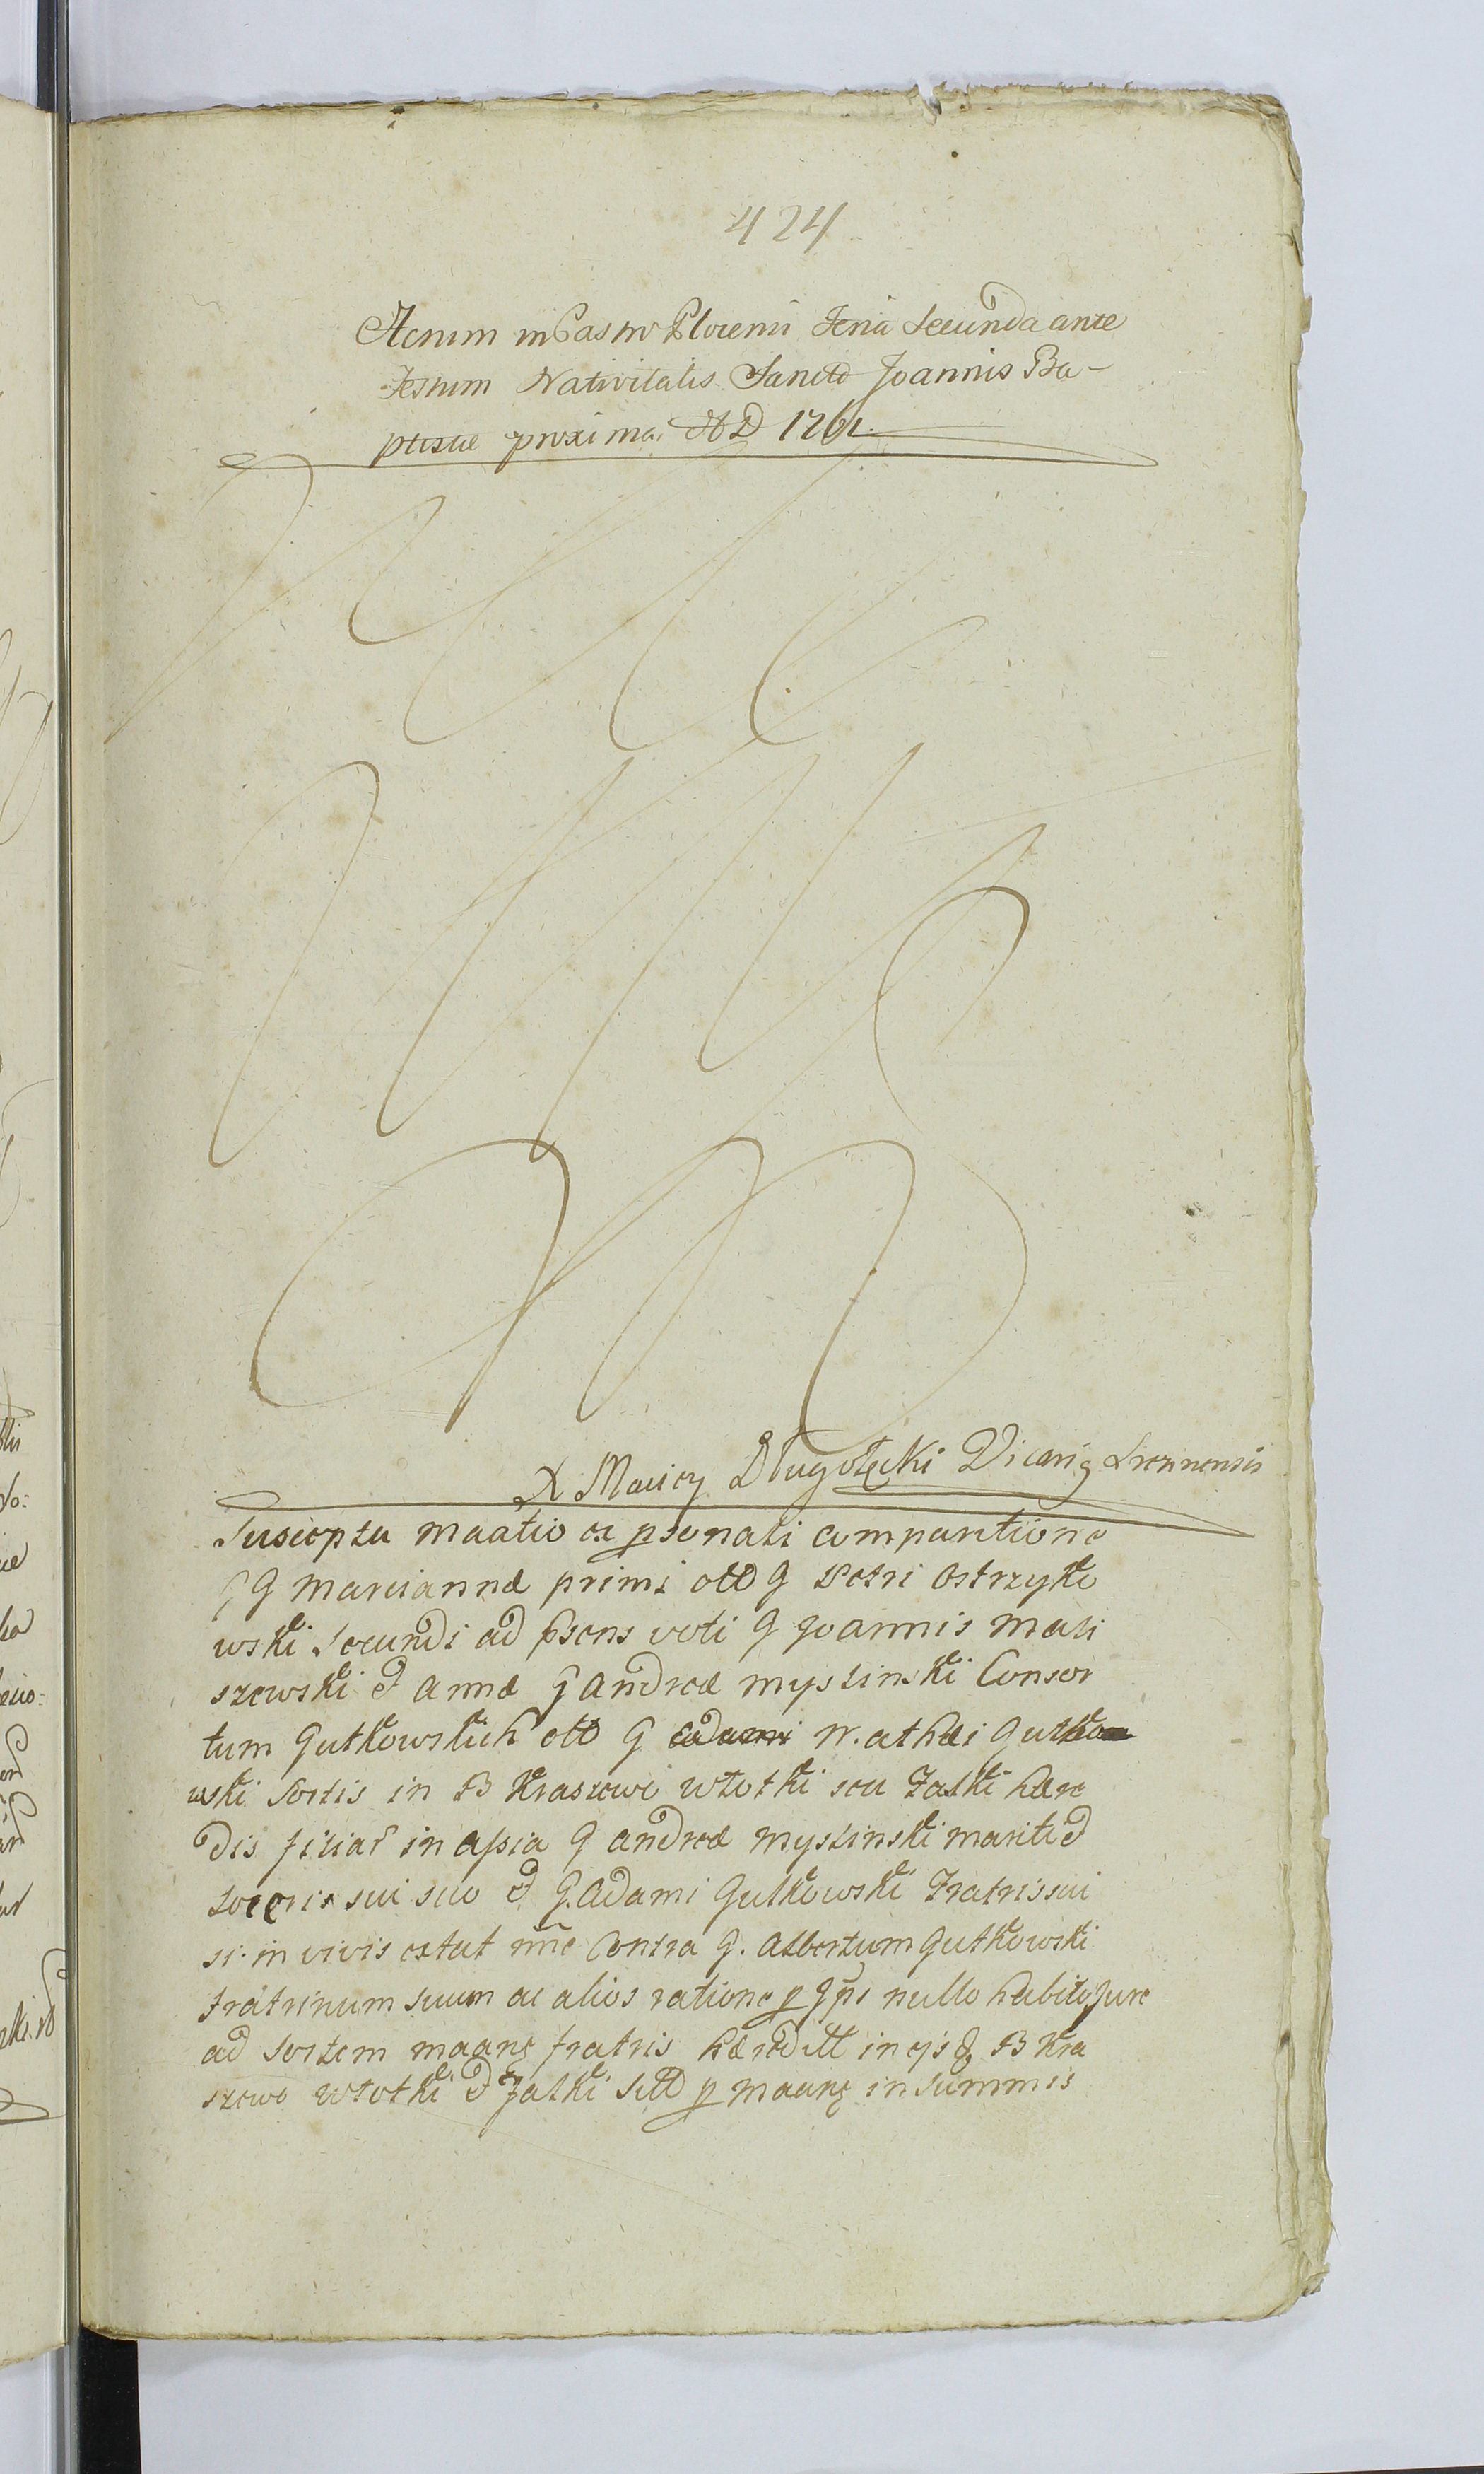 424
Actum in Castro Plocensi Feria Secunda ante
Festum Nativitatis Sancti Joannis Ba-
ptistae proxima AD 1761.
X Maciey Długołęcki Vicarig
Suscepta maatio ex psonali comparitione
G G Mariannæ primi olło G Petri Ostrzyko
wski Secundi ad psens voti G Joannis Mali
szewski & Annæ G Andreæ Myslinski Consor
tum Gutkowskich olło G Mathæi Gutko
wski Sortis in B Kraszewo Wtotki seu Falki hære
dis filiar in assia G Andreæ Myslinski mariti &
sororis sui suo & G. Adami Gutkowski Fratris sui
si in vivis extat nne Contra G. Albertum Gutkowski
fratrinum suum ac alios ratione p nullo habito Jure
ad Sortem maang fratris hæredill in B Kra
szewo Wtotki & Falki p maang in summis